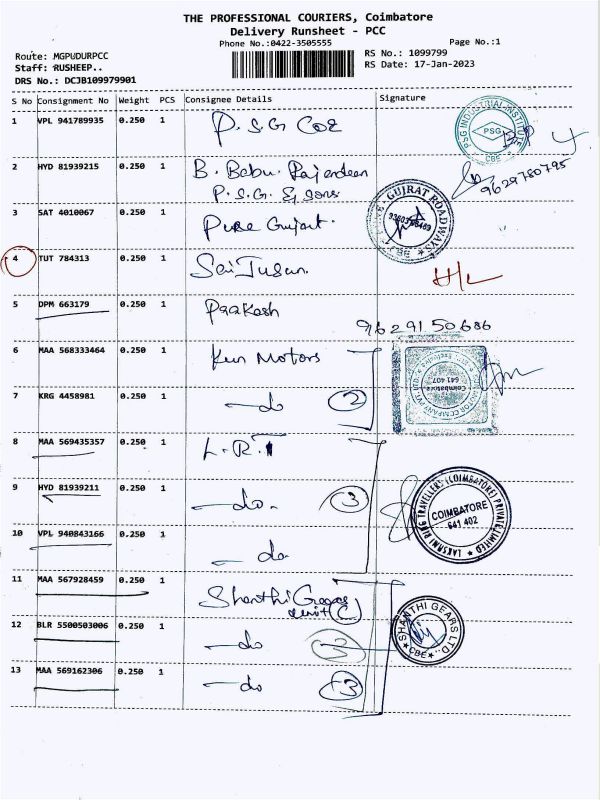 THE PROFESSIONAL COURIERS, Coimbatore
Delivery Runsheet - PCC
Phone No.:0422-3505555
Page No.:1
Route: MGPUDURPCC
RS No.: 1099799
Staff: RUSHEEP..
RS Date: 17-Jan-2023
DRS No.: DCJB109979901
S No Consignment No Weight PCS Consignee Details Signature
1 VPL 941789935 0.250 1 P.S.G COE
PSG INDUSTRIAL INSTITUTE PSG CBE
2 HYD 81939215 0.250 1 B. Babu. Rajendran
P.S.G. & Sons.
9629780795
3 SAT 4010067 0.250 1 Pure Gujart.
GUJRAT ROADWAYS CBE
4 TUT 784313 0.250 1 Sai
H/L
5 DPM 663179 0.250 1 Prakash 9629150686
6 MAA 568333464 0.250 1 Kun Motors
MOTOR COMPANY PVT. LTD. Coimbatore 641 407
7 KRG 4458981 0.250 1 — do 2
8 MAA 569435357 0.250 1 L.R.T
9 HYD 81939211 0.250 1 — do. 3
LAKSHMI RING TRAVELLERS (COIMBATORE) PRIVATE LIMITED COIMBATORE 641 402
10 VPL 940843166 0.250 1 — do.
11 MAA 567928459 0.250 1 Shanthi Gears
unit (C)
12 BLR 5500503006 0.250 1 — do 3
SHANTHI GEARS LTD. CBE
13 MAA 569162306 0.250 1 — do 3